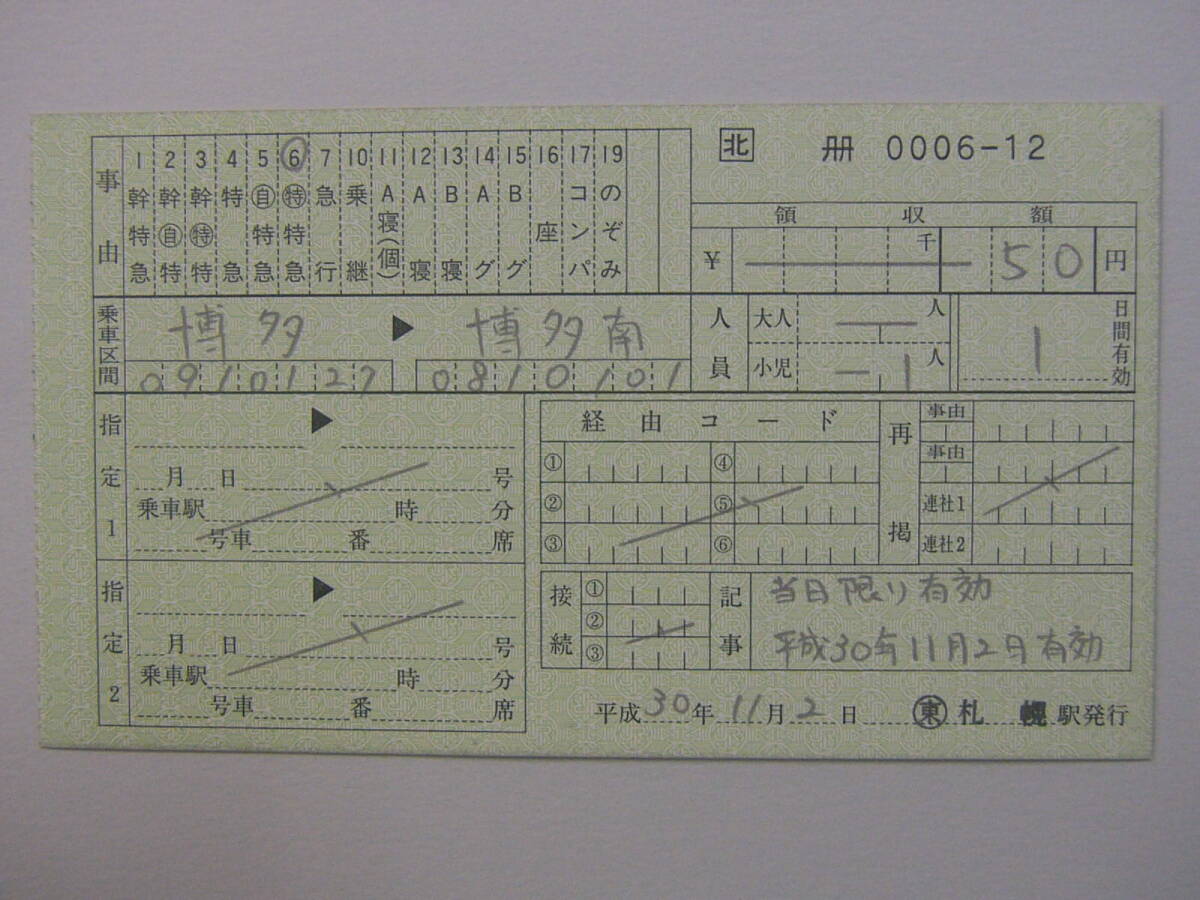 北 册 0006-12
事由
1 幹特急
2 幹自特
3 幹特特
4 特急
5 自特急
6 特特急
7 急行
10 乗継
11 A寝(個)
12 A寝
13 B寝
14 Aグ
15 Bグ
16 座
17 コンパ
19 のぞみ
領収額
¥ 千 50 円
乗車区間
博多 ▶ 博多南
0910127 0810101
人員
大人 人
小児 1人
1 日間有効
指定1
▶
月 日 号
乗車駅 時 分
号車 番 席
指定2
▶
月 日 号
乗車駅 時 分
号車 番 席
経由コード
① ④
② ⑤
③ ⑥
再掲
事由
事由
連社1
連社2
接続
①
②
③
記事
当日限り有効
平成30年11月2日有効
平成30年11月2日 東 札幌 駅発行